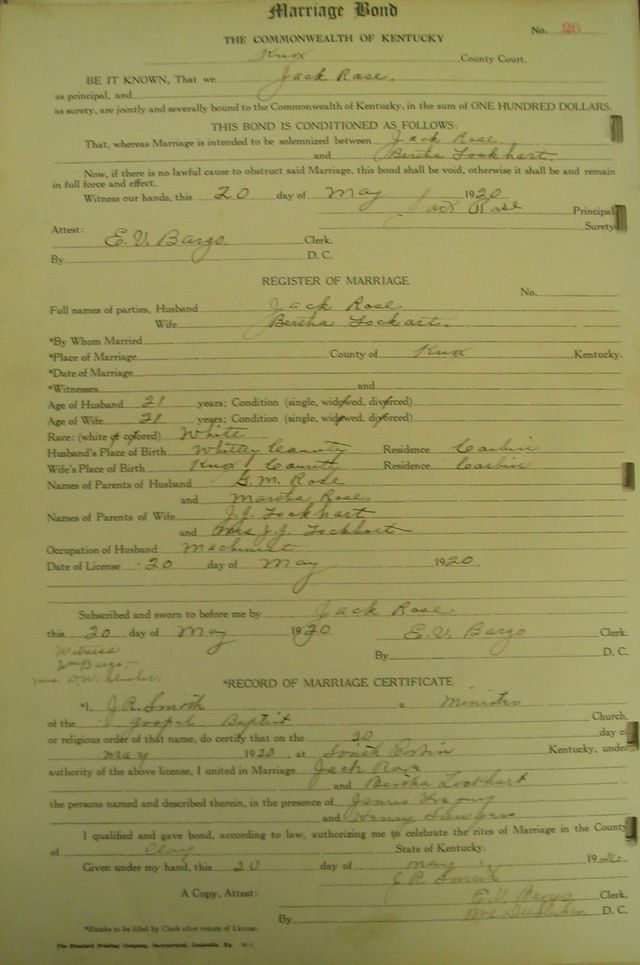 Marriage Bond
No. 26
THE COMMONWEALTH OF KENTUCKY
Knox County Court.
BE IT KNOWN, That we Jack Rose.
as principal, and
as surety, are jointly and severally bound to the Commonwealth of Kentucky, in the sum of ONE HUNDRED DOLLARS.
THIS BOND IS CONDITIONED AS FOLLOWS:
That, whereas Marriage is intended to be solemnized between Jack Rose
and Bertha Lockhart.
Now, if there is no lawful cause to obstruct said Marriage, this bond shall be void, otherwise it shall be and remain
in full force and effect.
Witness our hands, this 20 day of May 1920
Jack Rose Principal
Surety
Attest: E. V. Bargo Clerk.
By D. C.
REGISTER OF MARRIAGE
No.
Full names of parties, Husband Jack Rose.
Wife Bertha Lockart.
*By Whom Married
*Place of Marriage County of Knox Kentucky.
*Date of Marriage
*Witnesses and
Age of Husband 21 years; Condition (single, widowed, divorced)
Age of Wife 21 years; Condition (single, widowed, divorced)
Race: (white or colored) White
Husband's Place of Birth Whitley County Residence Corbin
Wife's Place of Birth Knox County Residence Corbin
Names of Parents of Husband G. M. Rose
and Martha Rose.
Names of Parents of Wife J. J. Lockhart
and Mrs J. J. Lockhart
Occupation of Husband Machinist
Date of License 20 day of May 1920.
Subscribed and sworn to before me by Jack Rose.
this 20 day of May 1920 E. V. Bargo Clerk.
By D. C.
Witness
Wm Bargo
Mrs D. W.
*RECORD OF MARRIAGE CERTIFICATE
*I, J. R. Smith a Minister
of the gospel Baptist Church,
or religious order of that name, do certify that on the 20 day of
May 1920, at South Corbin Kentucky, under
authority of the above license, I united in Marriage Jack Rose
and Bertha Lockhart
the persons named and described therein, in the presence of James
and Henry
I qualified and gave bond, according to law, authorizing me to celebrate the rites of Marriage in the County
of Clay State of Kentucky.
Given under my hand, this 20 day of May 1920
J. R. Smith
A Copy, Attest: E. V. Bargo Clerk.
By D. C.
*Blanks to be filled by Clerk after return of License.
The Standard Printing Company, Incorporated, Louisville, Ky.